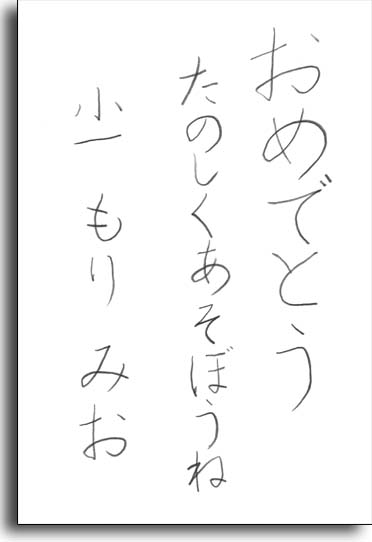 おめでとう
たのしくあそぼうね
小一 もり みお